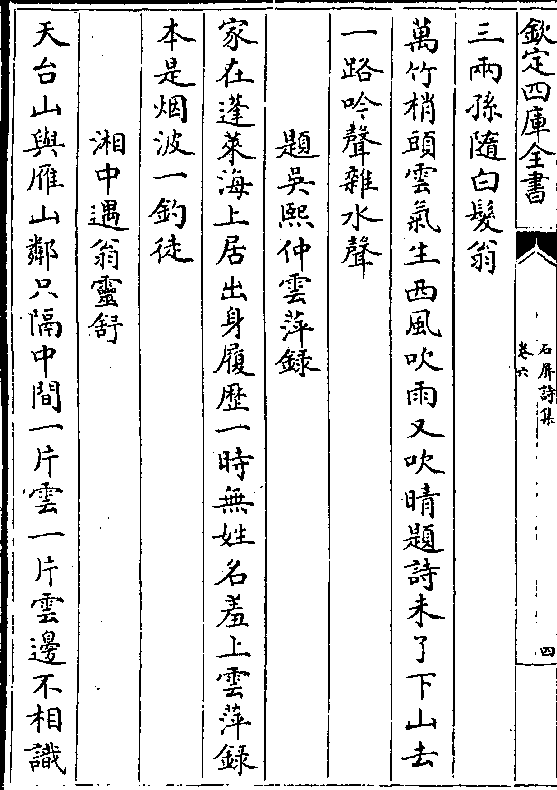 欽定四庫全書
石屏詩集
卷六
四
三兩孫隨白髮翁
萬竹梢頭雲氣生西風吹雨又吹晴題詩未了下山去
一路吟聲雜水聲
題吳熙仲雲萍録
家在蓬萊海上居出身履歴一時無姓名羞上雲萍録
本是烟波一釣徒
湘中遇翁靈舒
天台山與雁山鄰只隔中間一片雲一片雲邊不相識